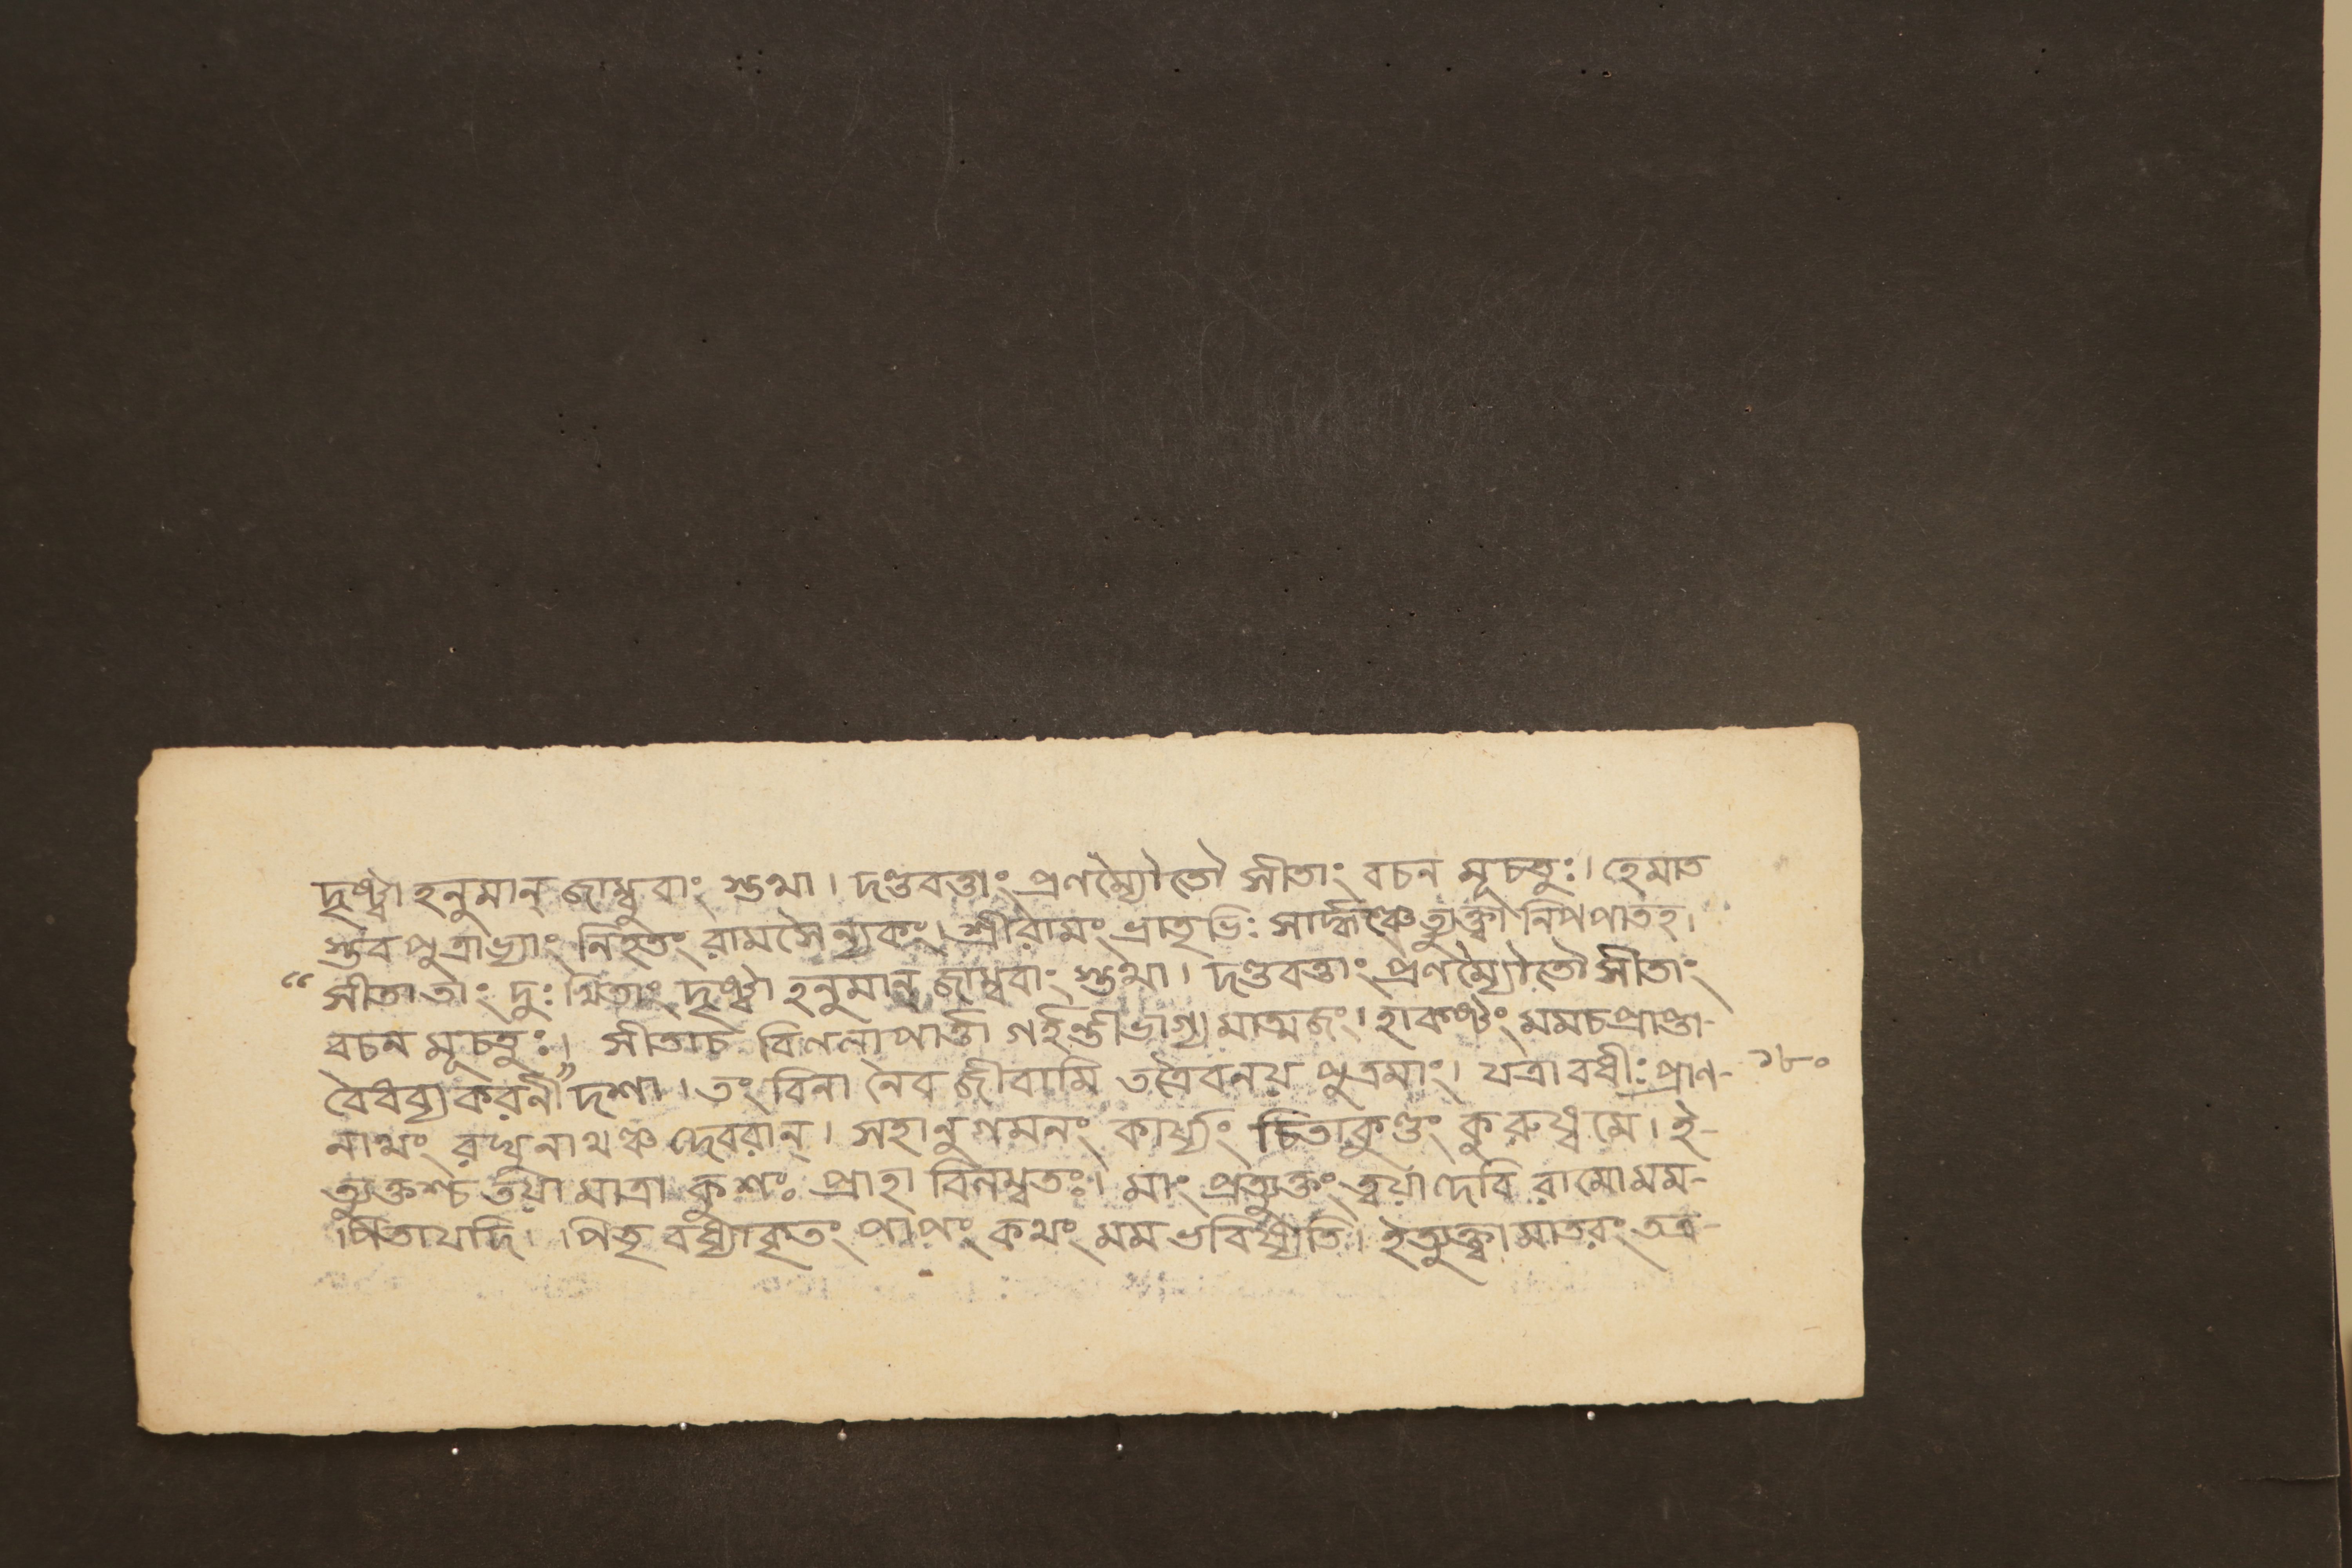 দৃষ্ট্বা হনুমান্ জাম্বুবাং স্তথা। দণ্ডবত্তাং প্রণম্যৈতৌ সীতাং বচন মূচতুঃ। হেমাত
স্তব পুত্রাভ্যাং নিহতং রামসৈন্যকং। শ্রীরামং ভ্রাতৃভিঃ সার্দ্ধঞ্চেত্যুক্ত্বা নিপপাতহ।
“সীতা তাং দুঃখিতাং দৃষ্ট্বা হনুমান্ জাম্ববাং স্তথা। দণ্ডবত্তাং প্রণম্যৈতৌ সীতাং
বচন মূচতুঃ।” সীতাচ বিললাপার্ত্তা গর্হন্তীভাগ্য মাত্মজং। হাকষ্টং মমচপ্রাপ্তা-
বৈধব্যকরনী দশা। তং বিনা নৈব জীবামি তত্রৈবনয় পুত্রমাং। যত্রাবধীঃ প্রাণ- ১৮০
নাথং রঘুনাথঞ্চ দেবরান্। সহানুগমনং কার্য্যং চিতাকুণ্ডং কুরুধ্বমে। ই-
ত্যুক্তশ্চ তয়া মাত্রা কুশঃ প্রাহা বিনম্বতঃ। মাং প্রত্যুক্তং ত্বয়া দেবি রামো মম-
পিতাযদি। পিতৃ বধ্যাকৃতং পাপং কথং মম ভবিষ্যতি। ইত্যুক্ত্বা মাতরং তত্র-